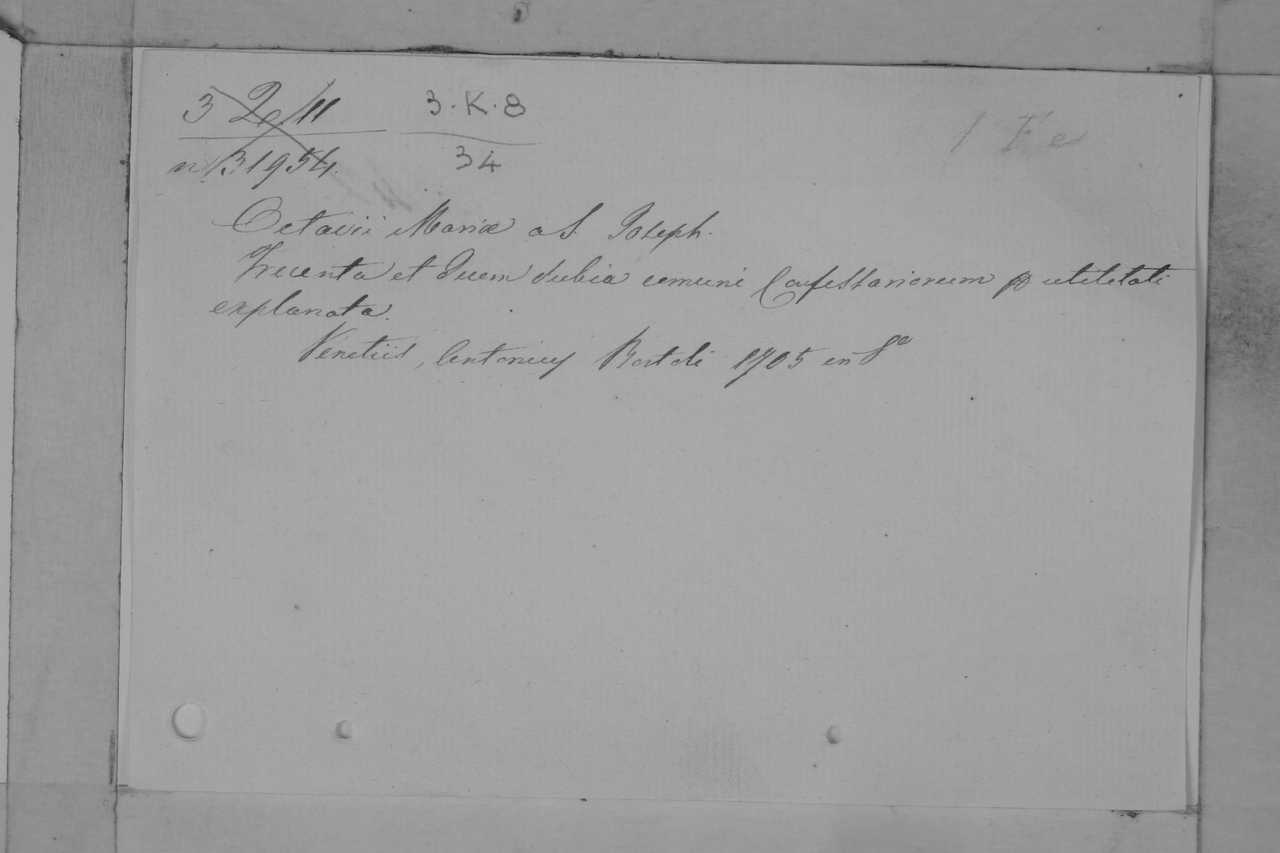 3 2 11 3.K.8
nº 31954. 34
1 Fe
Octavii Mariæ a S. Joseph.
Trecenta et decem dubia comuni Confessariorum utilitati
explanata.
Venetiis, Antonius Bortoli 1705 in 8º